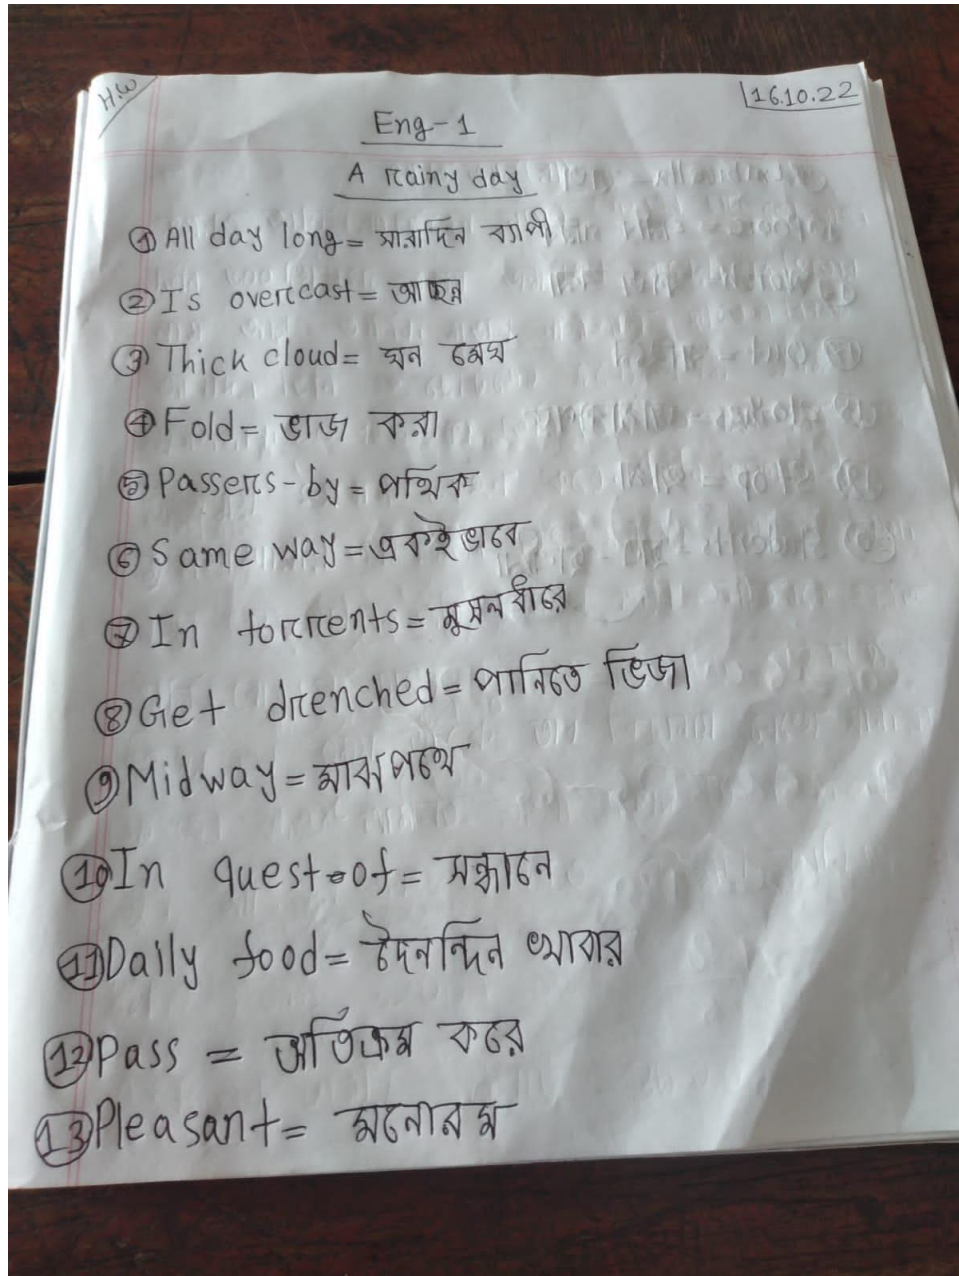 H.W
16.10.22
Eng-1
A rainy day
① All day long = সারাদিন ব্যাপী
② Is overcast = আছন্ন
③ Thick cloud = ঘন মেঘ
④ Fold = ভাজ করা
⑤ Passers-by = পথিক
⑥ Same way = একইভাবে
⑦ In torrents = মুসলধীরে
⑧ Get drenched = পানিতে ভিজা
⑨ Midway = মাঝপথে
⑩ In quest-of = সন্ধানে
⑪ Daily food = দৈনন্দিন খাবার
⑫ Pass = অতিক্রম করে
⑬ Pleasant = মনোরম